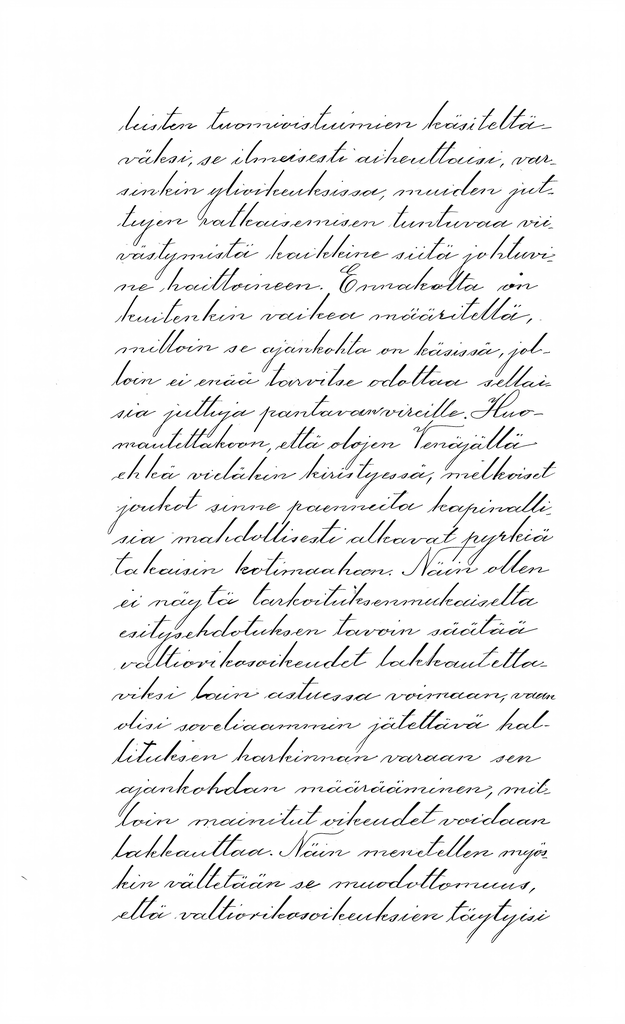 leisten tuomioistuimien käsiteltä-
väksi, se ilmeisesti aiheuttaisi, var-
sinkin ylioikeuksissa, muiden jut-
tujen ratkaisemisen tuntuvaa vii-
västymistä kaikkine siitä johtuvi-
ne haittoineen. Ennakolta on
kuitenkin vaikea määritellä,
milloin se ajankohta on käsissä, jol-
loin ei enää tarvitse odottaa sellai-
sia juttuja pantavan vireille. Huo-
mautettakoon, että olojen Venäjällä
ehkä vieläkin kiristyessä, melkoiset
joukot sinne paenneita kapinalli-
sia mahdollisesti alkavat pyrkiä
takaisin kotimaahan. Näin ollen
ei näytä tarkoituksenmukaiselta
esitysehdotuksen tavoin säätää
valtiorikosoikeudet lakkautetta-
viksi lain astuessa voimaan, vaan
olisi soveliaammin jätettävä hal-
lituksen harkinnan varaan sen
ajankohdan määrääminen, mil-
loin mainitut oikeudet voidaan
lakkauttaa. Näin menetellen myös-
kin vältetään se muodottomuus,
että valtiorikosoikeuksien täytyisi